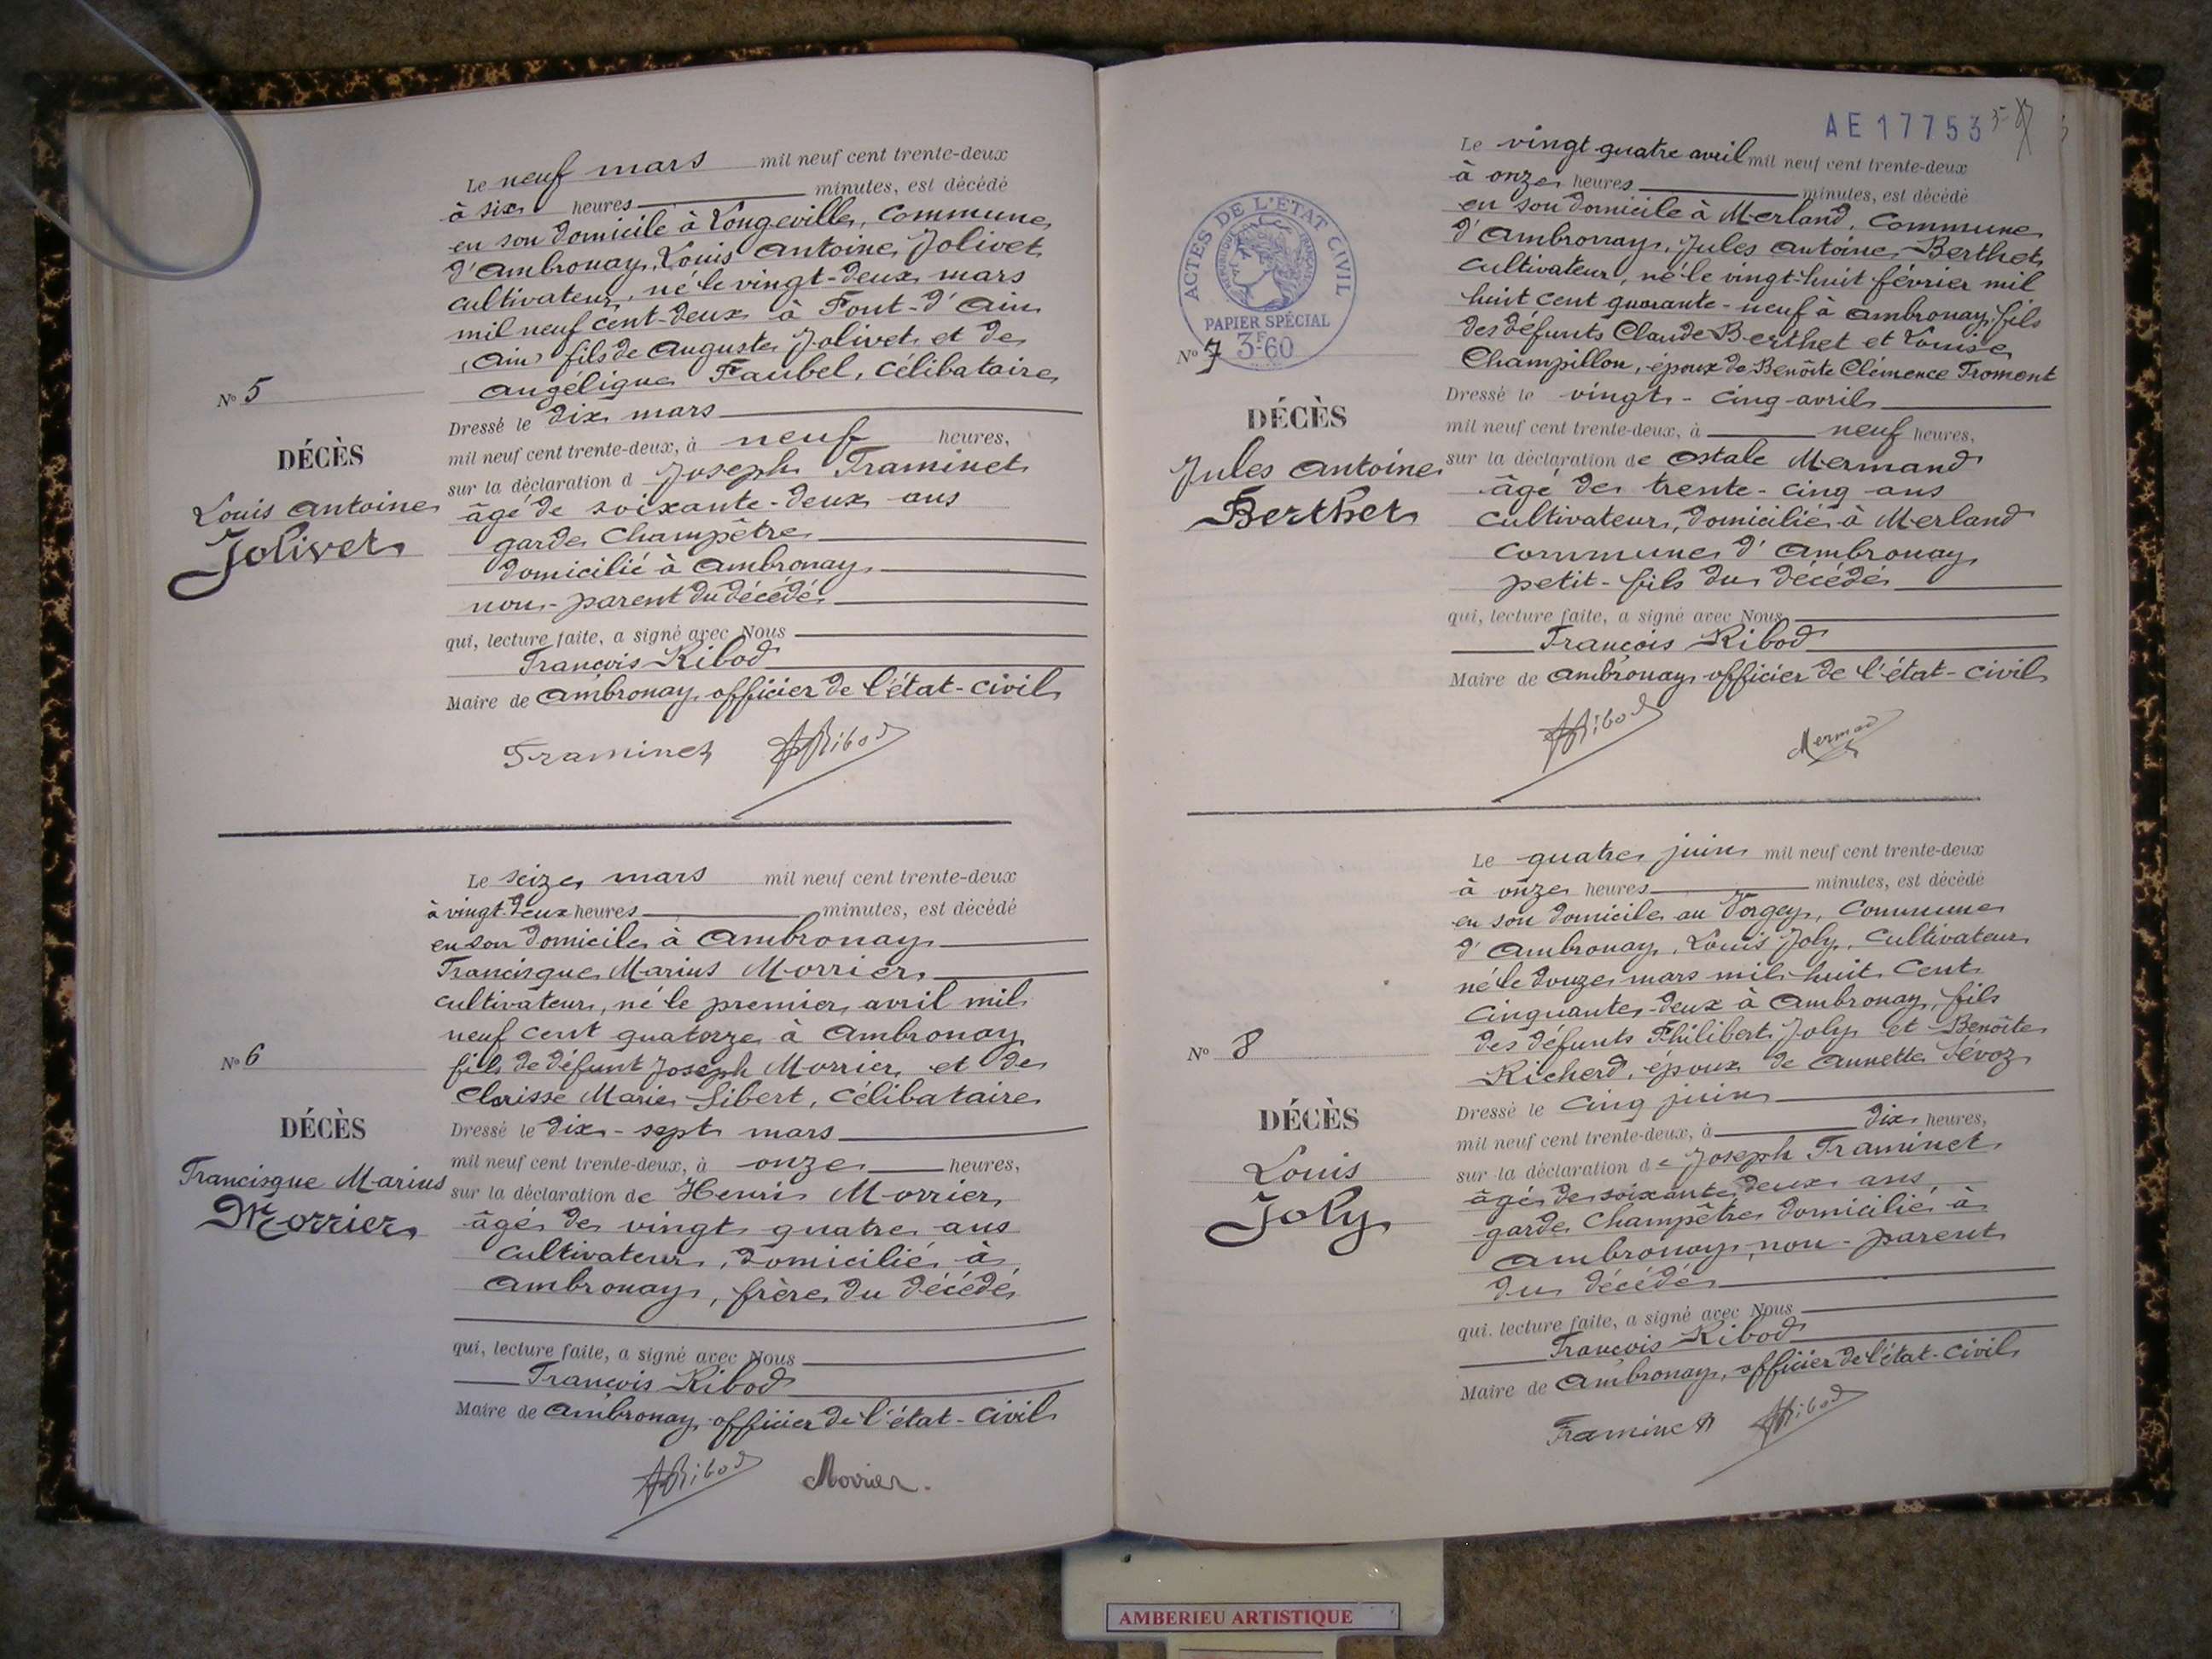 Le neuf mars mil neuf cent trente-deux
à six heures minutes, est décédé
en son domicile à Longeville, commune
d'Ambronay, Louis Antoine Jolivet
cultivateur, né le vingt-deux mars
mil neuf cent-deux à Pont-d'Ain
(Ain) fils de Auguste Jolivet et de
Angélique Faubel, célibataire
No 5
Dressé le dix mars
mil neuf cent trente-deux, à neuf heures,
DÉCÈS
sur la déclaration d Joseph Traminet
Louis Antoine
Jolivet
âgé de soixante-deux ans
garde champêtre
domicilié à Ambronay
non-parent du décédé
qui, lecture faite, a signé avec Nous
François Ribod
Maire de Ambronay officier de l'état-civil
Traminet Ribod
Le seize mars mil neuf cent trente-deux
à vingt-deux heures minutes, est décédé
en son domicile à Ambronay
Francisque Marius Morrier,
cultivateur, né le premier avril mil
neuf cent quatorze à Ambronay
No 6
fils de défunt Joseph Morrier et de
Clarisse Marie Libert, célibataire
DÉCÈS
Dressé le dix-sept mars
mil neuf cent trente-deux, à onze heures,
Francisque Marius
Morrier
sur la déclaration de Henri Morrier
âgé de vingt quatre ans
cultivateur, domicilié à
Ambronay, frère du décédé
qui, lecture faite, a signé avec Nous
François Ribod
Maire de Ambronay officier de l'état-civil
Ribod Morrier.
AE17753
ACTES DE L'ÉTAT CIVIL
PAPIER SPÉCIAL
3F60
Le vingt quatre avril mil neuf cent trente-deux
à onze heures minutes, est décédé
en son domicile à Merland, commune
d'Ambronay, Jules Antoine Berthet
cultivateur, né le vingt-huit février mil
huit cent quarante-neuf à Ambronay, fils
des défunts Claude Berthet et Louise
No 7
Champillon, époux de Benoîte Clémence Fromont
Dressé le vingt-cinq avril
DÉCÈS
mil neuf cent trente-deux, à neuf heures,
Jules Antoine
Berthet
sur la déclaration de Ostale Mermand
âgé de trente-cinq ans
cultivateur, domicilié à Merland
commune d'Ambronay
petit-fils du décédé
qui, lecture faite, a signé avec Nous
François Ribod
Maire de Ambronay officier de l'état-civil
Ribod Mermad
Le quatre juin mil neuf cent trente-deux
à onze heures minutes, est décédé
en son domicile au Vorgey, commune
d'Ambronay, Louis Joly, cultivateur
né le douze mars mil huit cent
cinquante-deux à Ambronay, fils
des défunts Philibert Joly et Benoîte
No 8
Richerd, époux de Annette Sévoz
Dressé le cinq juin
DÉCÈS
mil neuf cent trente-deux, à dix heures,
Louis
Joly
sur la déclaration de Joseph Traminet
âgé de soixante deux ans,
garde champêtre domicilié à
Ambronay, non-parent
du décédé
qui, lecture faite, a signé avec Nous
François Ribod
Maire de Ambronay, officier de l'état-civil
Traminet Ribod
AMBERIEU ARTISTIQUE